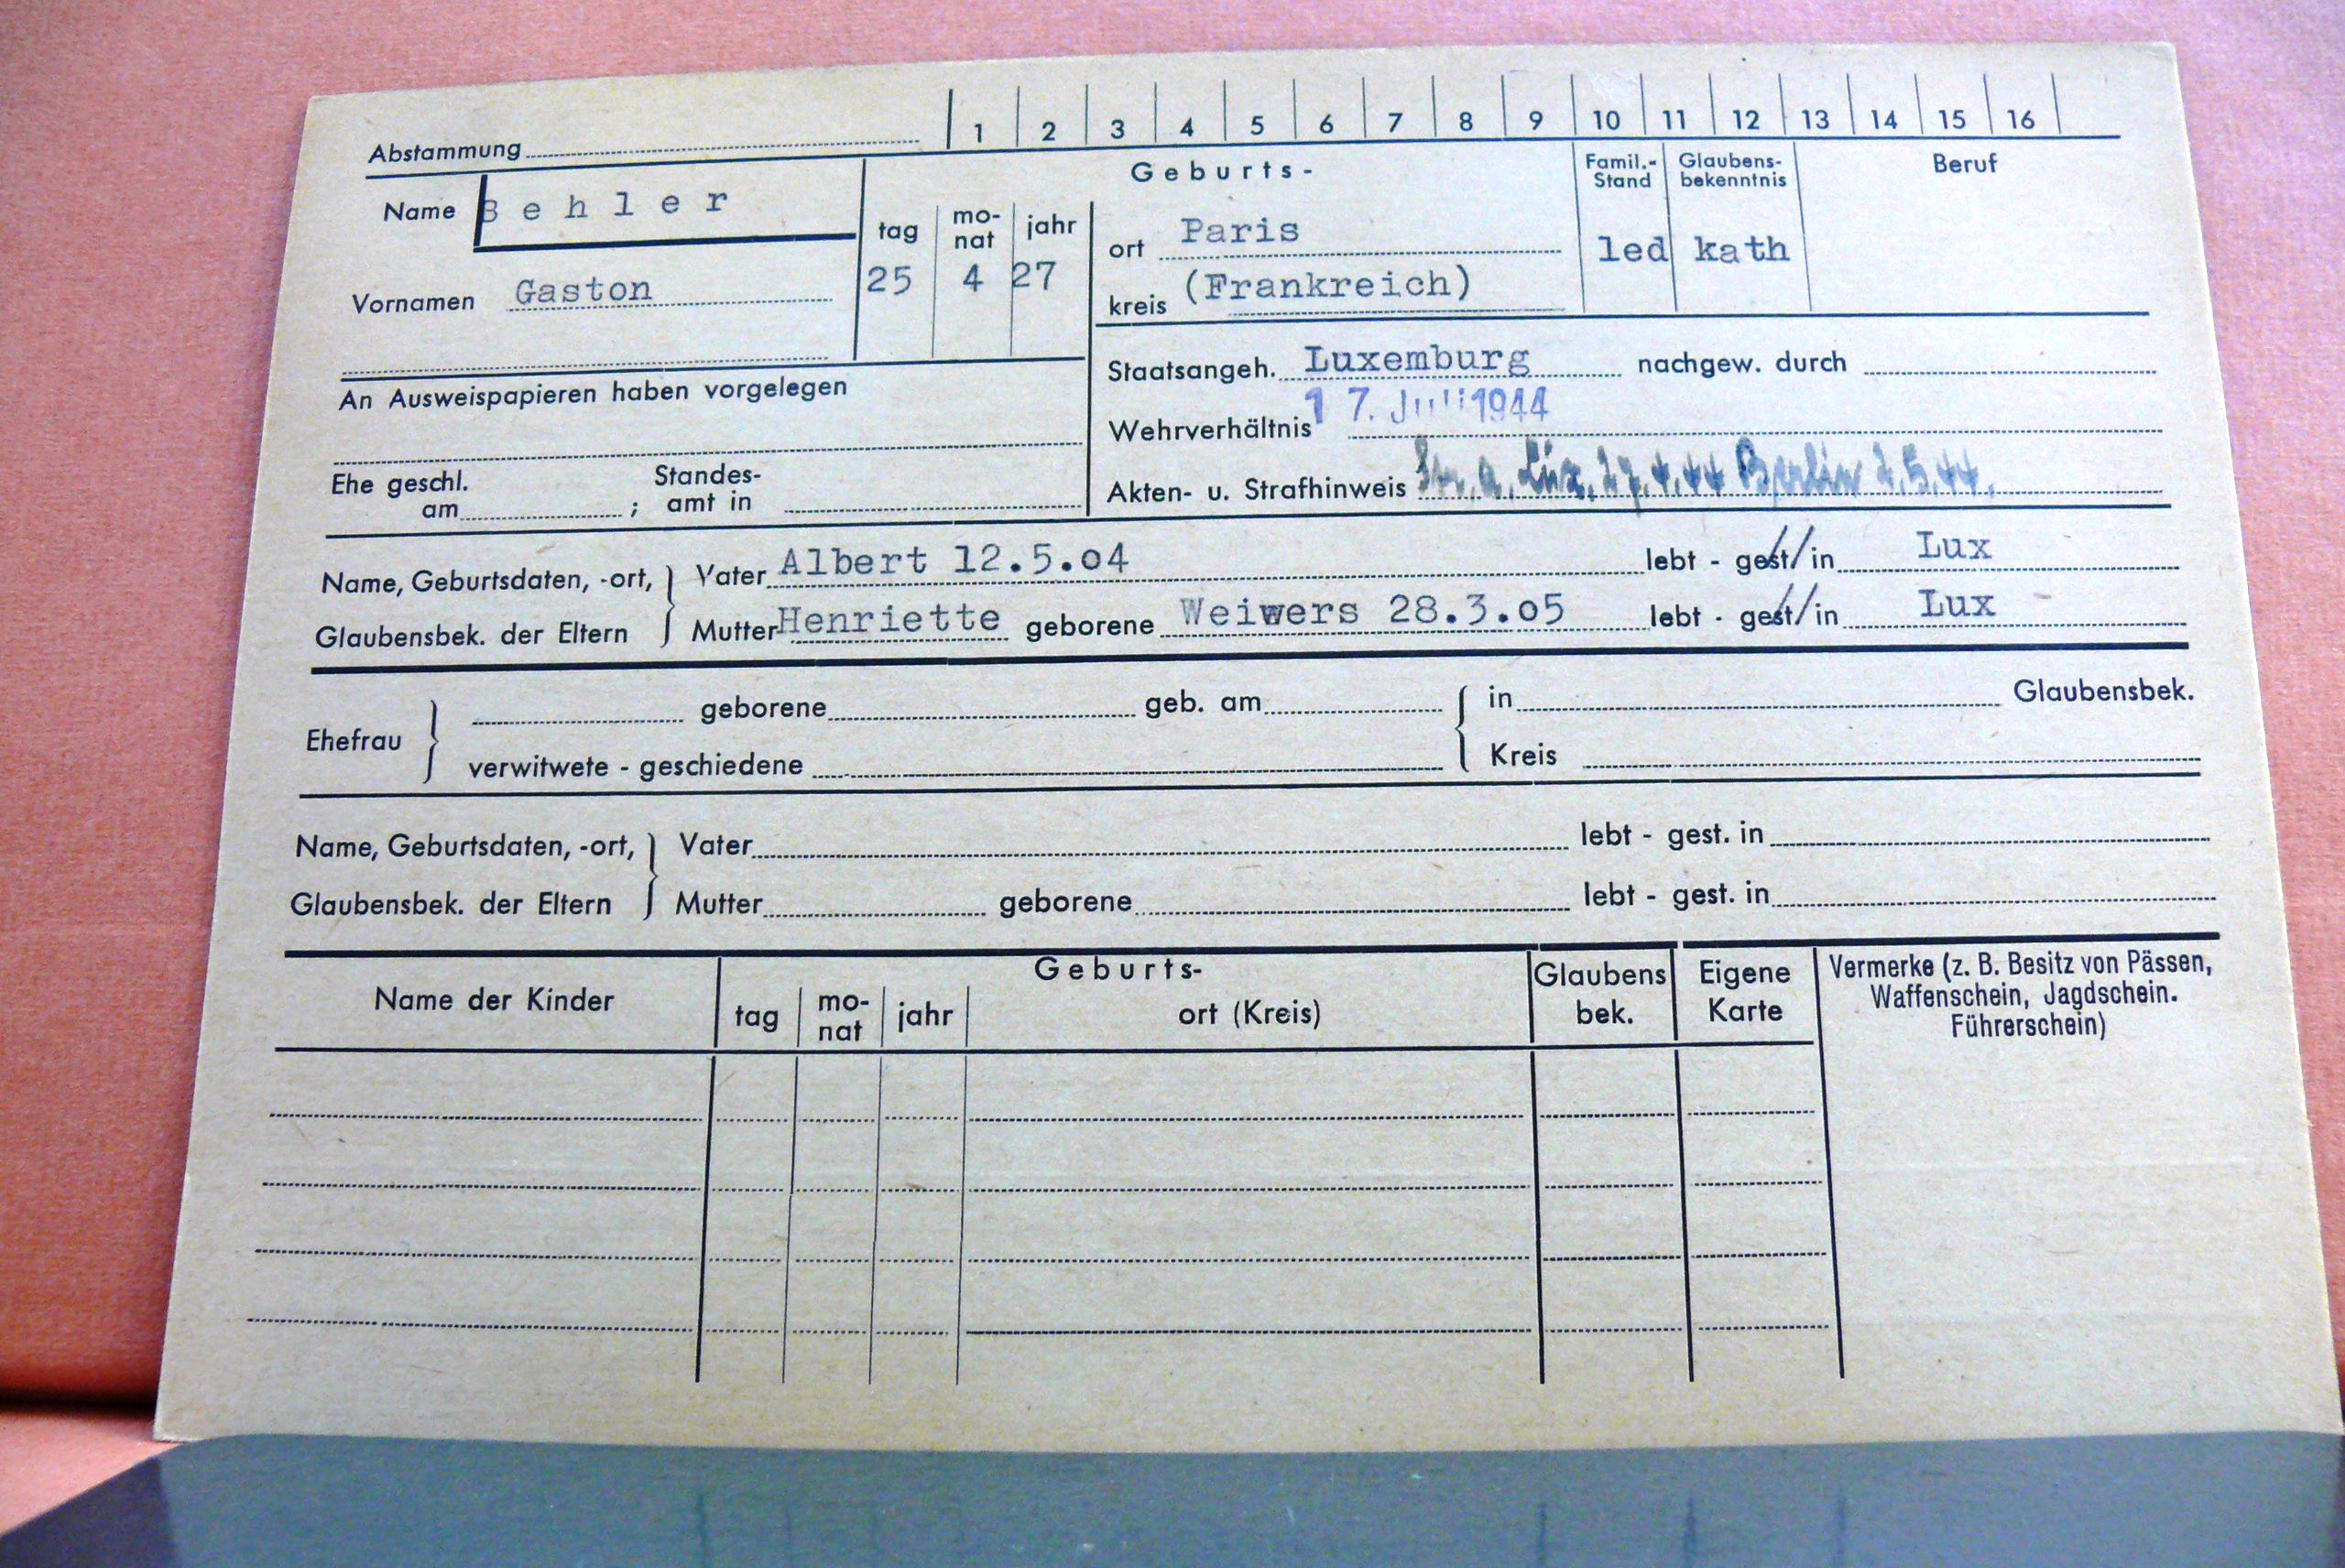 Abstammung 1 2 3 4 5 6 7 8 9 10 11 12 13 14 15 16
Name Behler
Vornamen Gaston
Geburts-
tag mo-nat jahr
25 4 27
ort Paris
kreis (Frankreich)
Famil.-Stand
led
Glaubens-bekenntnis
kath
Beruf
An Ausweispapieren haben vorgelegen
Ehe geschl. am ; Standes-amt in
Staatsangeh. Luxemburg nachgew. durch
Wehrverhältnis 17. Juli 1944
Akten- u. Strafhinweis Str. a. Lux. 27.4.44 Berlin 2.5.44.
Name, Geburtsdaten, -ort, } Vater Albert 12.5.04 lebt - gest/in Lux
Glaubensbek. der Eltern Mutter Henriette geborene Weiwers 28.3.05 lebt - gest/in Lux
Ehefrau } geborene geb. am { in Glaubensbek.
verwitwete - geschiedene Kreis
Name, Geburtsdaten, -ort, } Vater lebt - gest. in
Glaubensbek. der Eltern Mutter geborene lebt - gest. in
Name der Kinder
Geburts-
tag mo-nat jahr ort (Kreis)
Glaubens bek.
Eigene Karte
Vermerke (z. B. Besitz von Pässen,
Waffenschein, Jagdschein.
Führerschein)